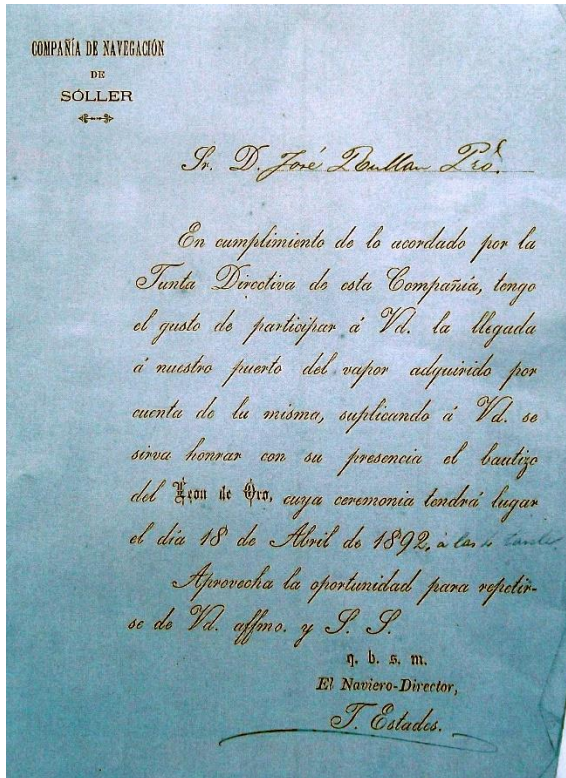 COMPAÑÍA DE NAVEGACIÓN
DE
SÓLLER
Sr. D. José Rullan Pro.
En cumplimiento de lo acordado por la
Junta Directiva de esta Compañía, tengo
el gusto de participar á Vd. la llegada
á nuestro puerto del vapor adquirido por
cuenta de la misma, suplicando á Vd. se
sirva honrar con su presencia el bautizo
del Leon de Oro, cuya ceremonia tendrá lugar
el día 18 de Abril de 1892, á las 4 tarde.
Aprovecha la oportunidad para repetir-
se de Vd. affmo. y S. S.
q. b. s. m.
El Naviero-Director,
J. Estades.